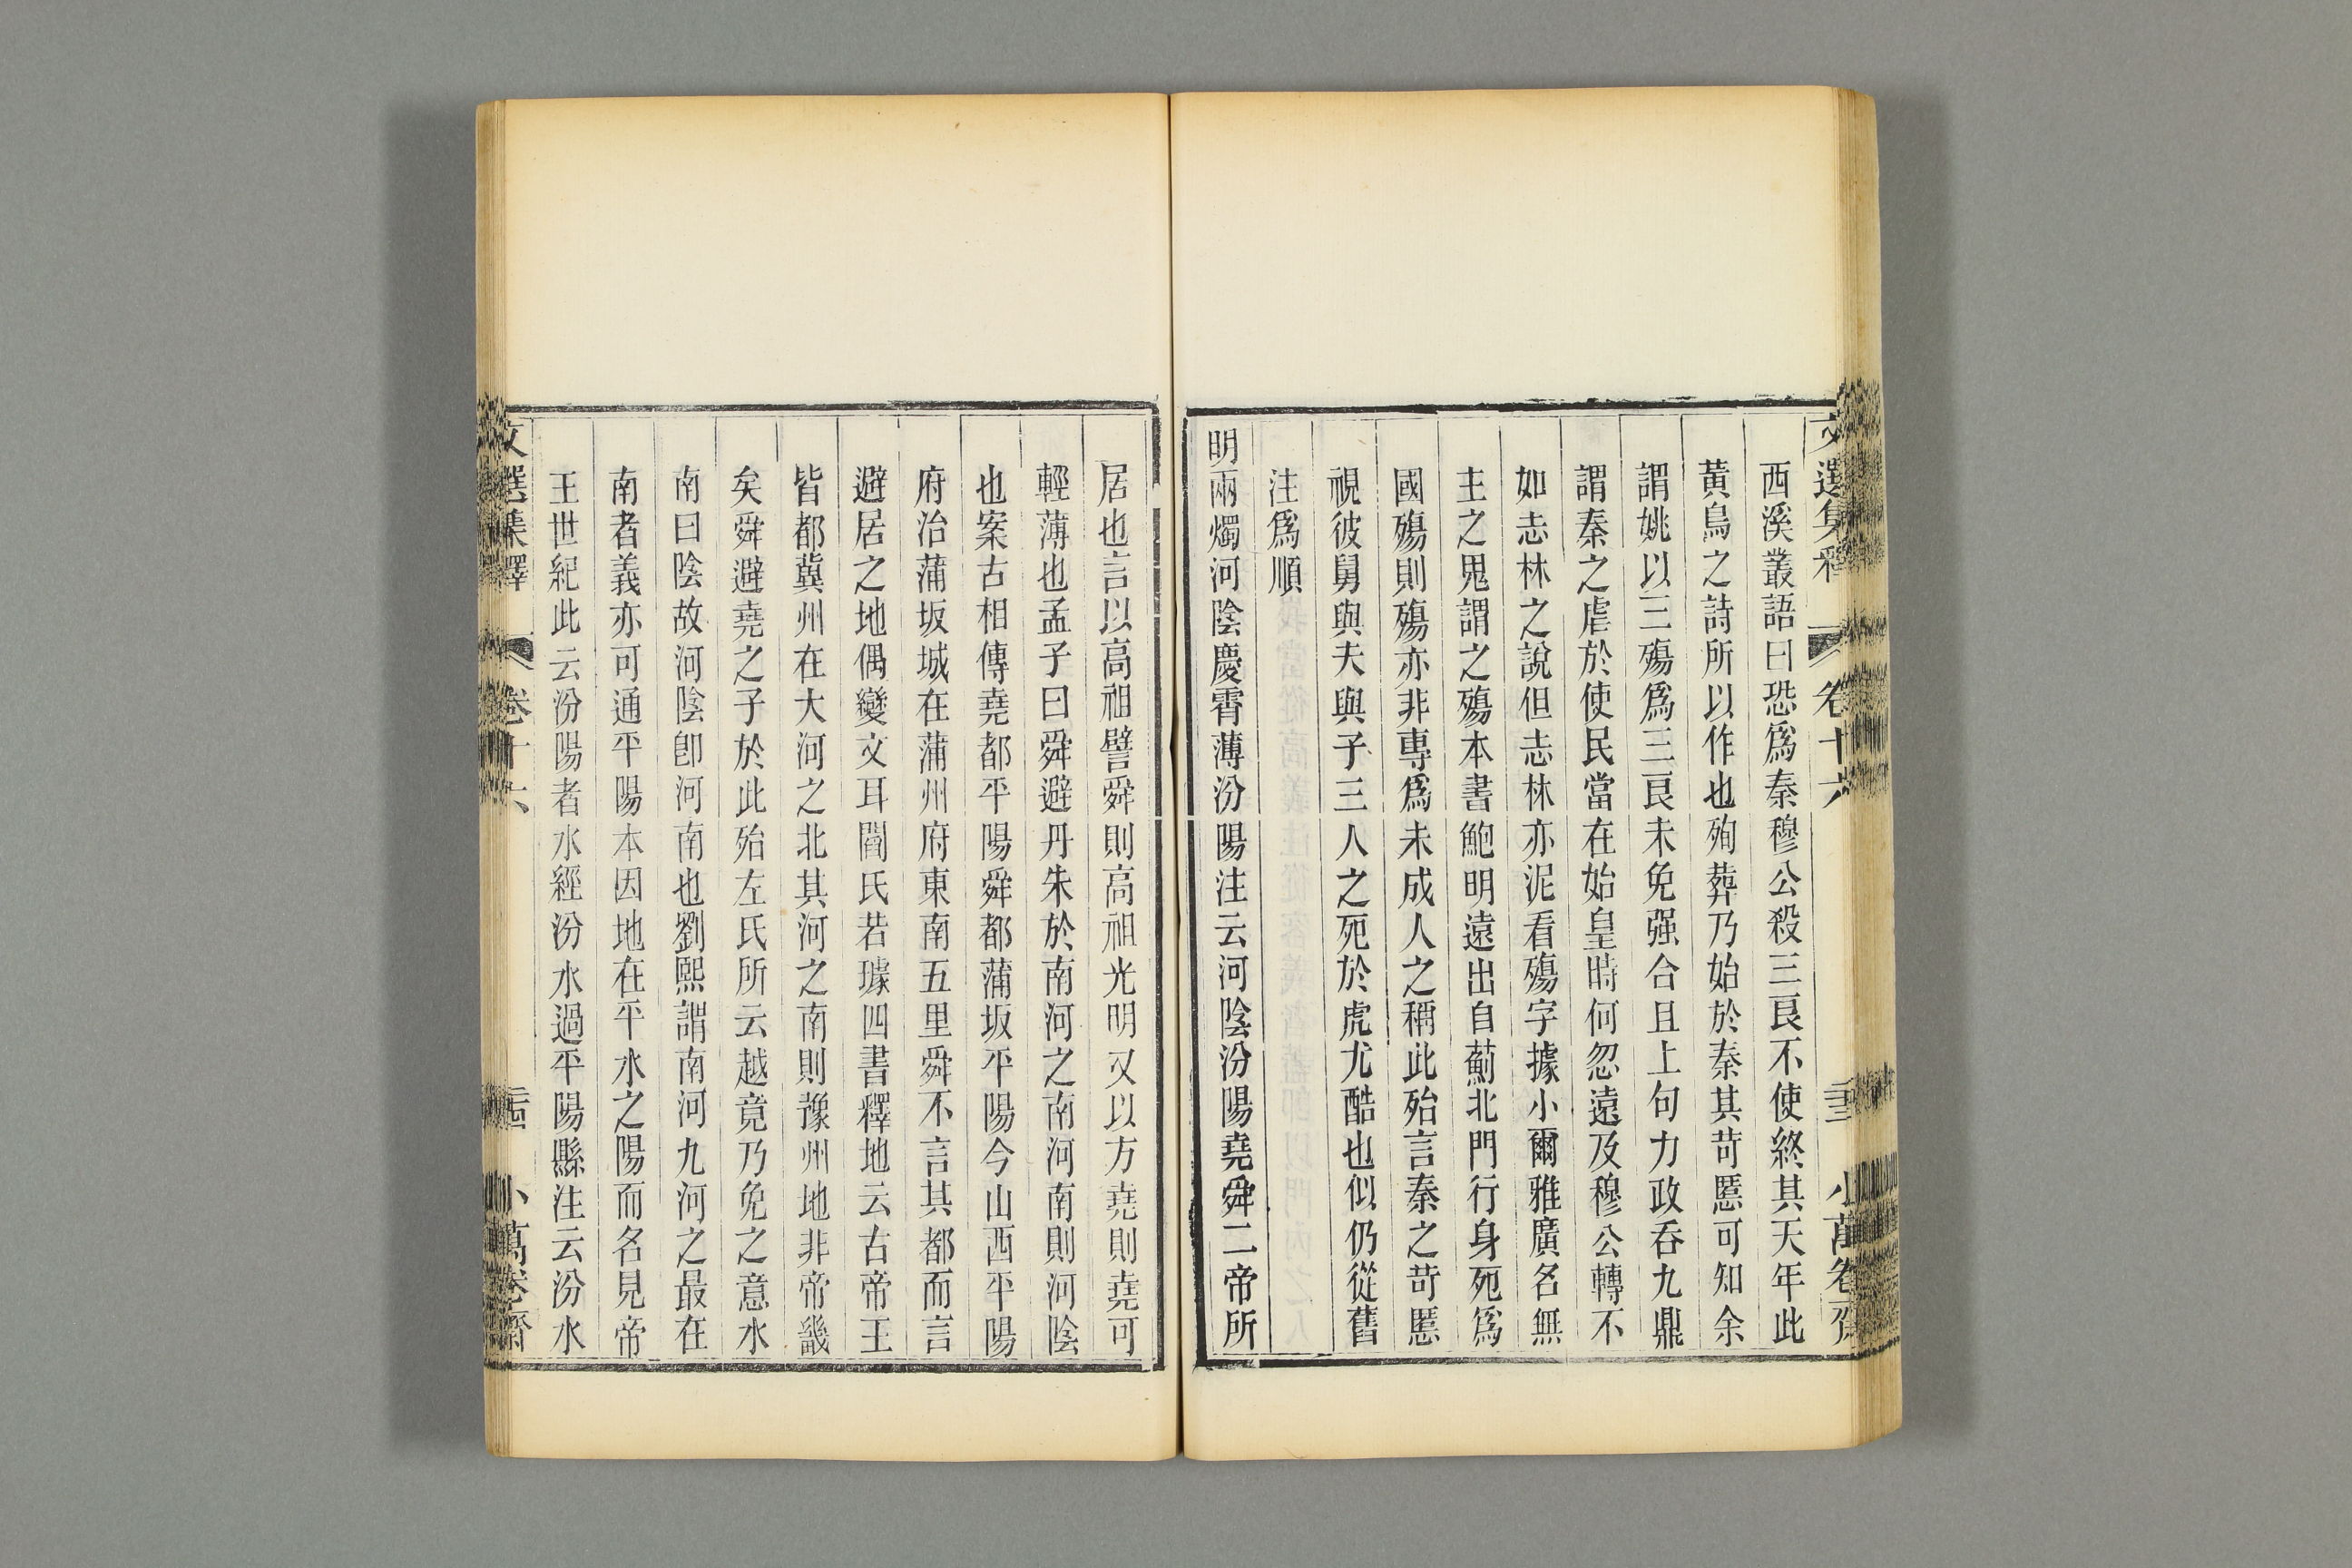 文選集釋 卷十六 二十三 小萬卷齋
西溪叢語曰恐爲秦穆公殺三良不使終其天年此
黃鳥之詩所以作也殉葬乃始於秦其苛慝可知余
謂姚以三殤爲三良未免强合且上句力政吞九鼎
謂秦之虐於使民當在始皇時何忽遠及穆公轉不
如志林之說但志林亦泥看殤字據小爾雅廣名無
主之鬼謂之殤本書鮑明遠出自薊北門行身死爲
國殤則殤亦非專爲未成人之稱此殆言秦之苛慝
視彼舅與夫與子三人之死於虎尤酷也似仍從舊
注爲順
明兩燭河陰慶霄薄汾陽注云河陰汾陽堯舜二帝所
居也言以高祖譬舜則高祖光明又以方堯則堯可
輕薄也孟子曰舜避丹朱於南河之南河南則河陰
也案古相傳堯都平陽舜都蒲坂平陽今山西平陽
府治蒲坂城在蒲州府東南五里舜不言其都而言
避居之地偶變文耳閻氏若璩四書釋地云古帝王
皆都冀州在大河之北其河之南則豫州地非帝畿
矣舜避堯之子於此殆左氏所云越竟乃免之意水
南曰陰故河陰卽河南也劉熙謂南河九河之最在
南者義亦可通平陽本因地在平水之陽而名見帝
王世紀此云汾陽者水經汾水過平陽縣注云汾水
文選集釋 卷十六 二十四 小萬卷齋